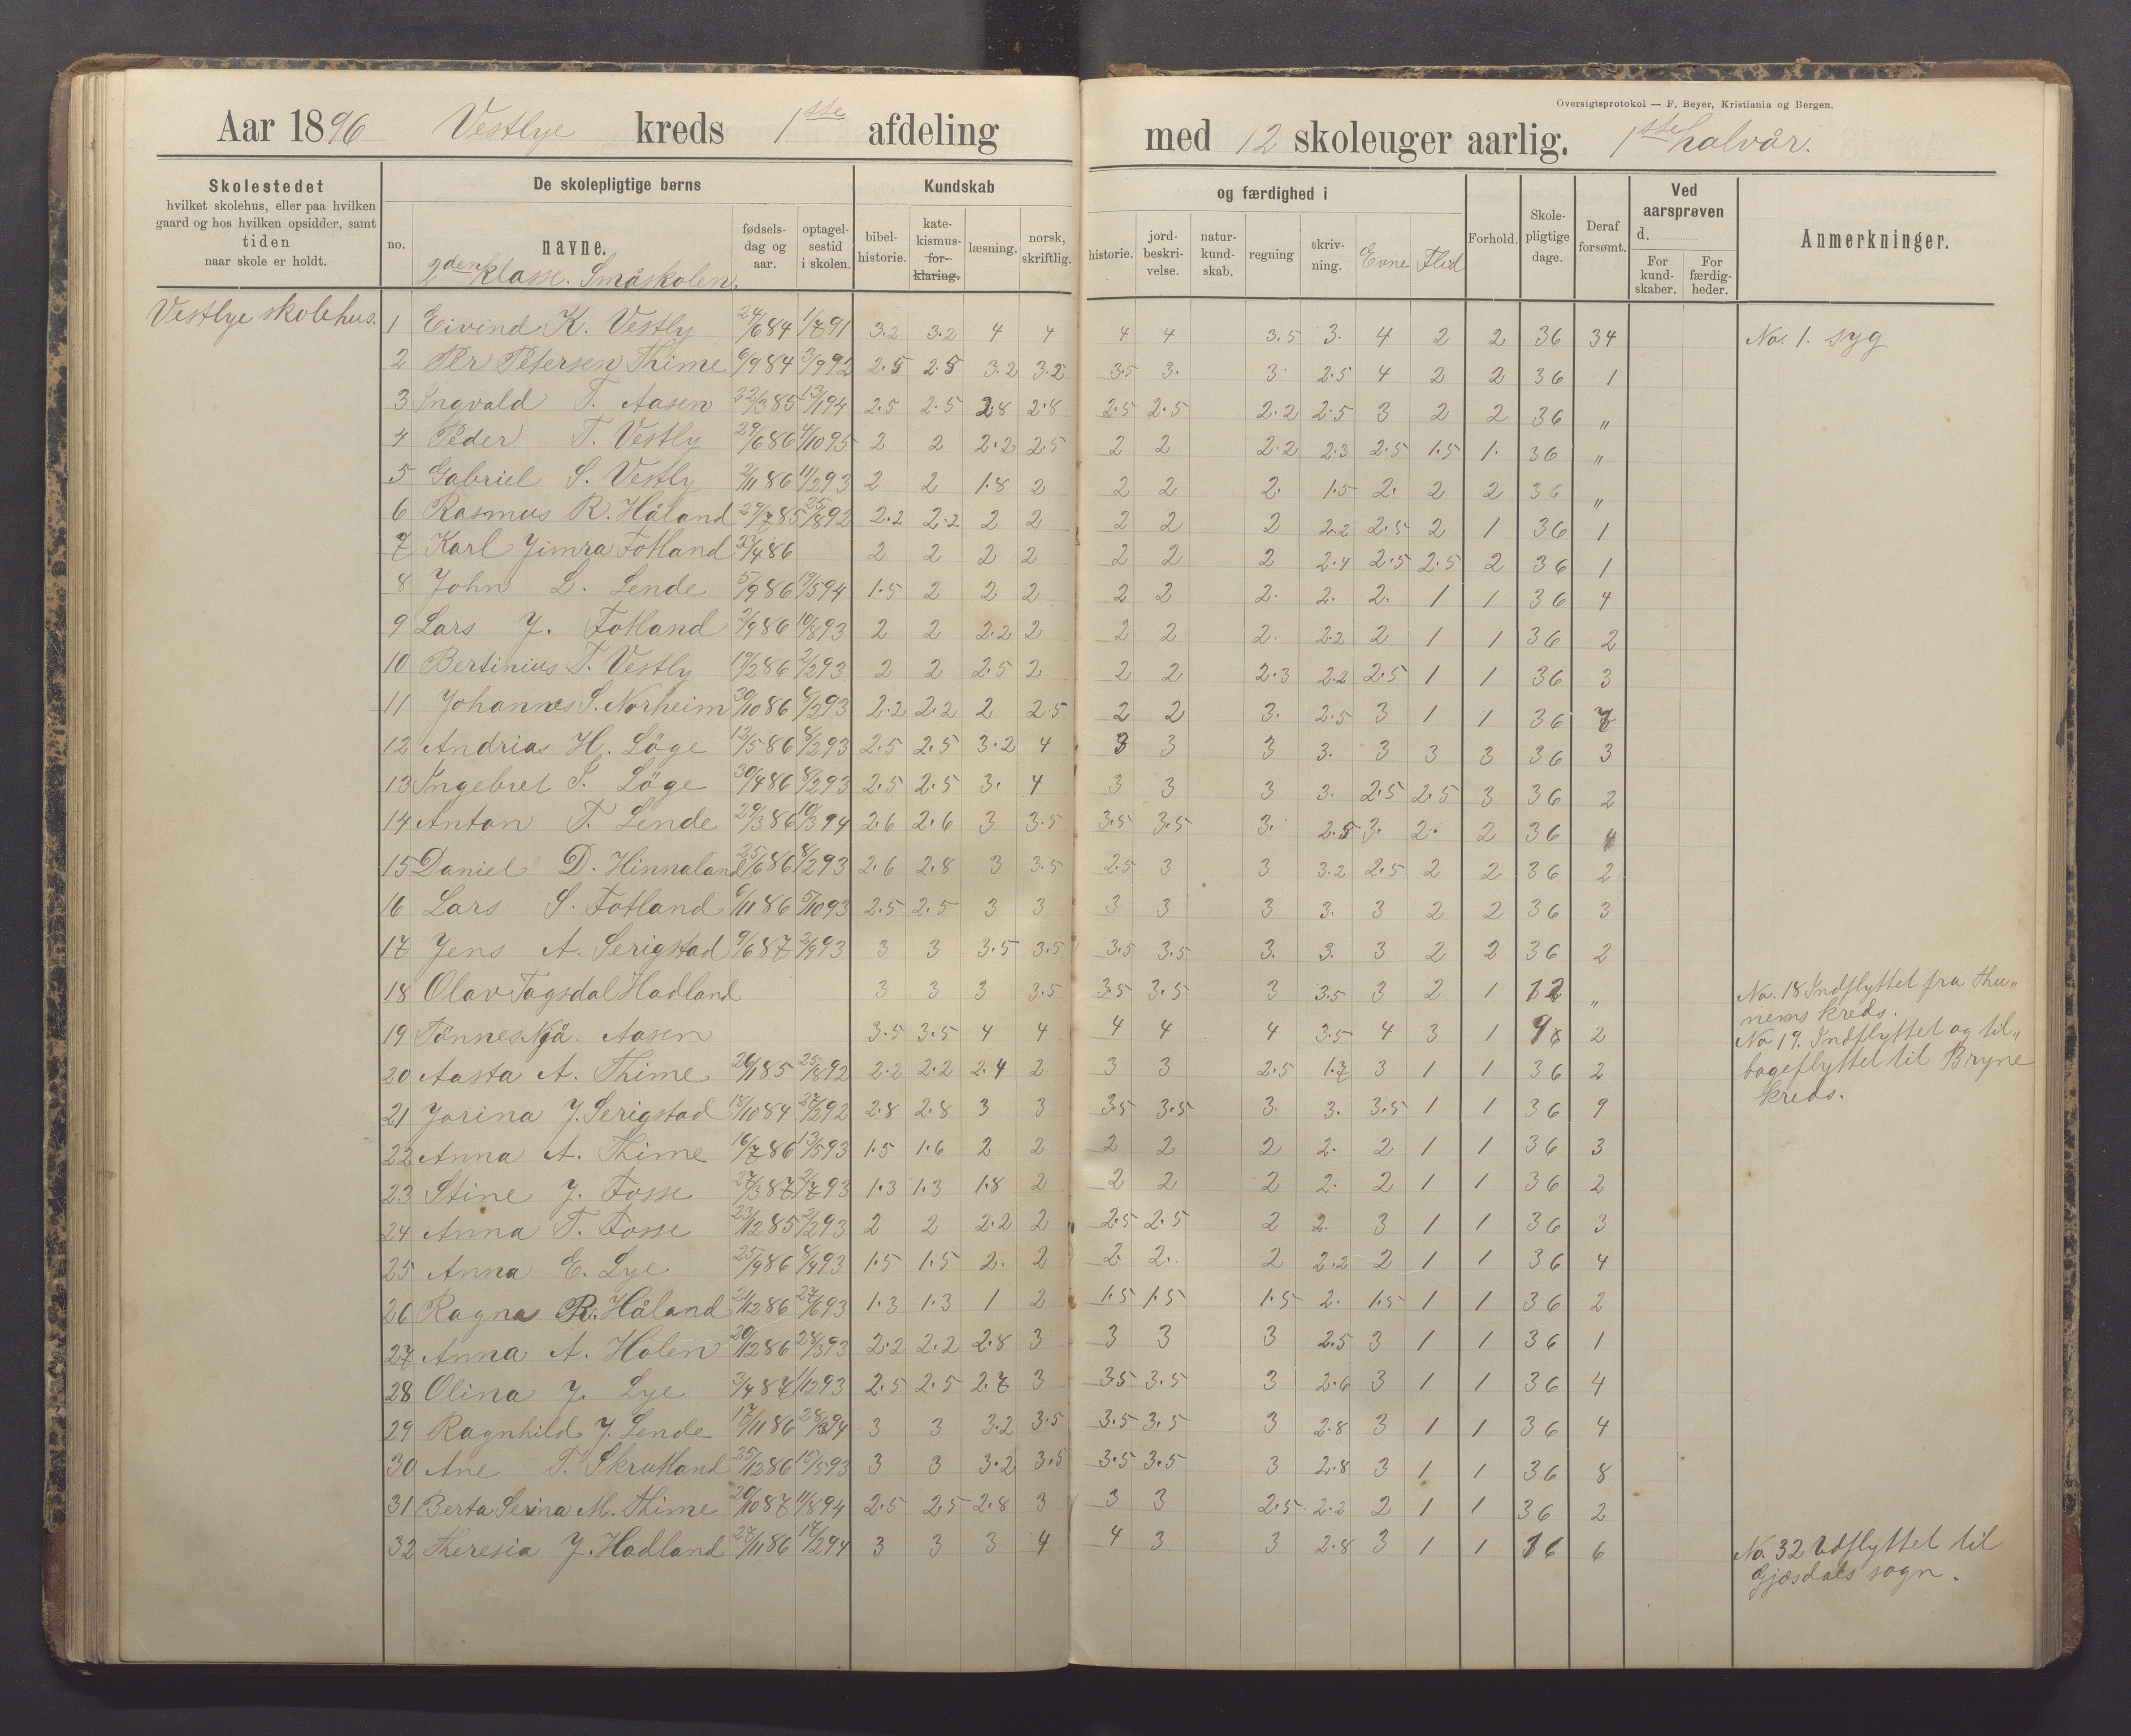 Oversigtsprotokol — F. Beyer, Kristiania og Bergen.
Aar 1896 Vestlye kreds 1ste afdeling med 12 skoleuger aarlig. 1ste halvår.
Skolestedet
hvilket skolehus, eller paa hvilken
gaard og hos hvilken opsidder, samt
tiden
naar skole er holdt.
De skolepligtige børns
no. navne. fødsels-dag og aar. optagel-sestid i skolen.
2den klasse. Småskolen.
Kundskab og færdighed i
bibel-historie. kate-kismus-for-klaring. læsning. norsk, skriftlig. historie. jord-beskri-velse. natur-kund-skab. regning skriv-ning. Evne Flid
Forhold. Skole-pligtige dage. Deraf forsømt.
Ved aarsprøven d.
For kund-skaber. For færdig-heder.
Anmerkninger.
Vestlye skolehus.
1 Eivind K. Vestly 24/6 84 1/7 91 3.2 3.2 4 4 4 4 3.5 3. 4 2 2 36 34 No. 1. syg
2 Per Petersen Thime 6/9 84 3/9 92 2.5 2.5 3.2 3.2 3.5 3. 3. 2.5 4 2 2 36 1
3 Ingvald T. Aasen 22/3 85 13/1 94 2.5 2.5 2.8 2.8 2.5 2.5 2.2 2.5 3 2 2 36 "
4 Peder T. Vestly 29/6 86 4/10 95 2 2 2.2 2.5 2 2 2.2 2.3 2.5 1.5 1. 36 "
5 Gabriel S. Vestly 2/11 86 11/2 93 2 2 1.8 2 2 2 2. 1.5 2. 2 2 36 "
6 Rasmus R. Håland 29/7 85 25/8 92 2.2 2.2 2 2 2 2 2 2.2 2.5 2 1 36 1
7 Karl Jimra Fotland 23/4 86 2 2 2 2 2 2 2 2.4 2.5 2.5 2 36 1
8 John L. Lende 5/9 86 19/5 94 1.5 2 2 2 2 2 2. 2. 2. 1 1 36 4
9 Lars J. Fotland 2/9 86 10/8 93 2 2 2.2 2 2 2 2. 2.2 2 1 1 36 2
10 Bertinius T. Vestly 19/2 86 2/2 93 2 2 2.5 2 2 2 2.3 2.2 2.5 1 1 36 3
11 Johannes S. Norheim 30/10 86 8/2 93 2.2 2.2 2 2.5 2 2 3. 2.5 3 1 1 36 7
12 Andrias H. Löge 12/5 86 8/2 93 2.5 2.5 3.2 4 3 3 3 3. 3 3 3 36 3
13 Ingebret S. Löge 30/4 86 8/2 93 2.5 2.5 3. 4 3 3 3 3. 2.5 2.5 3 36 2
14 Anton T. Lende 29/3 86 10/3 94 2.6 2.6 3 3.5 3.5 3.5 3. 2.5 3. 2. 2 36 4
15 Daniel D. Hinnaland 25/6 86 8/2 93 2.6 2.8 3 3.5 2.5 3 3 3.2 2.5 2 2 36 2
16 Lars S. Fotland 6/11 86 5/10 93 2.5 2.5 3 3 3 3 3 3. 3 2 2 36 3
17 Jens A. Serigstad 9/6 87 2/9 93 3 3 3.5 3.5 3.5 3.5 3. 3. 3 2 2 36 2
18 Olav Tagsdal Hadland 3 3 3 3.5 3.5 3.5 3 3.5 3 2 1 12 " No. 18 Indflyttet fra Thu„
nems kreds.
19 Tönnes Njå. Aasen 3.5 3.5 4 4 4 4 4 3.5 4 3 1 2 No 19. Indflyttet og til„
bageflyttet til Bryne
kreds.
20 Aasta A. Thime 26/1 85 25/8 92 2.2 2.2 2.4 2 3 3 2.5 1.7 3 1 1 36 2
21 Jorina J. Serigstad 18/10 84 27/2 92 2.8 2.8 3 3 3.5 3.5 3. 3. 3.5 1 1 36 9
22 Anna A. Thime 16/7 86 13/5 93 1.5 1.6 2 2 2 2 2 2. 2 1 1 36 3
23 Stine J. Fosse 27/3 87 2/7 93 1.3 1.3 1.8 2 2 2 2 2. 2 1 1 36 2
24 Anna T. Fosse 23/12 85 2/2 93 2 2 2.2 2 2.5 2.5 2 2. 3 1 1 36 3
25 Anna E. Lye 25/9 86 8/4 93 1.5 1.5 2. 2 2. 2. 2 2.2 2 1 1 36 4
26 Ragna R. Håland 21/12 86 27/6 93 1.3 1.3 1 2 1.5 1.5 1.5 2. 1.5 1 1 36 2
27 Anna A. Holen 20/12 86 28/3 93 2.2 2.2 2.8 3 3 3 3 2.5 3 1 1 36 1
28 Olina J. Lye 3/4 87 1/12 93 2.5 2.5 2.7 3 3.5 3.5 3 2.6 3 1 1 36 4
29 Ragnhild J. Lende 17/11 86 28/3 94 3 3 3.2 3.5 3.5 3.5 3 2.8 3 1 1 36 4
30 Ane T. Skrutland 25/12 86 15/5 93 3 3 3.2 3.5 3.5 3.5 3 2.8 3 1 1 36 8
31 Berta Serina M. Thime 20/10 87 11/8 94 2.5 2.5 2.8 3 3 3 2.5 2.2 2 1 1 36 2
32 Theresia J. Hadland 27/11 86 17/2 94 3 3 3 4 4 3 3 2.8 3 1 1 16 6 No. 32 Udflyttet til
Gjesdals sogn.